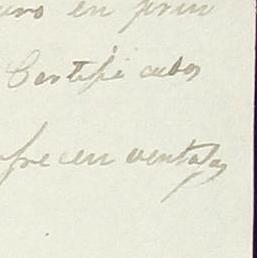 uro en prin
Certificados
ofrecen ventajas